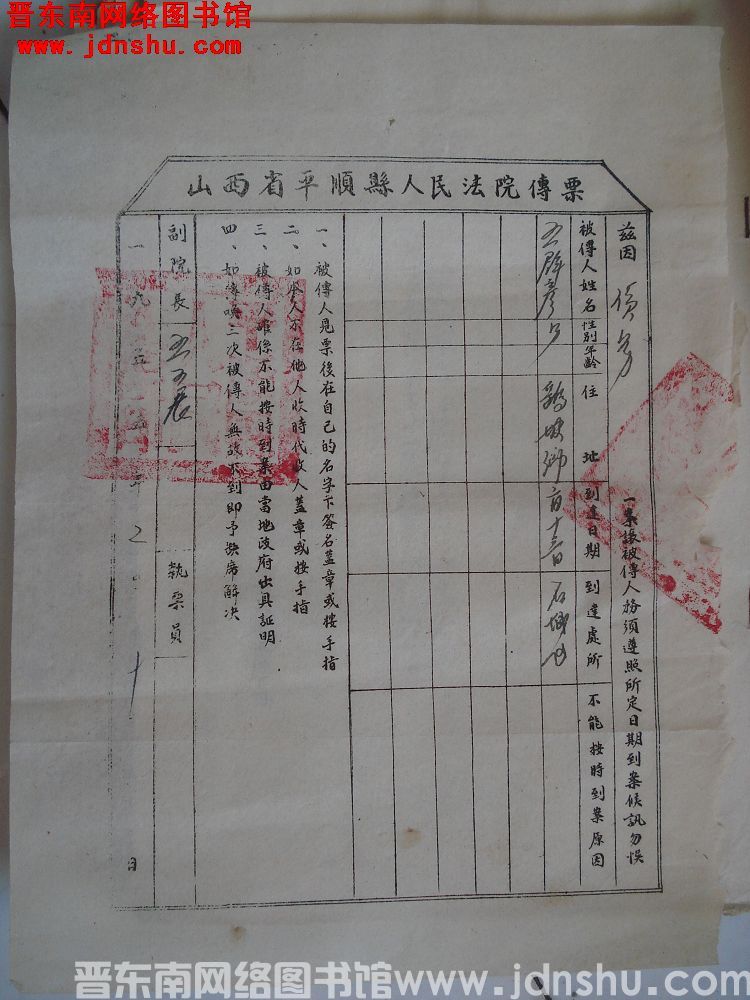 晋东南网络图书馆
www.jdnshu.com
山西省平順縣人民法院傳票
茲因 債务 一案議被傳人務須遵照所定日期到案候訊勿悞
被傳人姓名 性別 年齡 住址 到達日期 到達處所 不能按時到案原因
男 鄉 十三日 石城
一、被傳人見票後在自己的名字下簽名蓋章或按手指
二、如本人不在他人收時代收人蓋章或按手指
三、被傳人確係不能按時到案由當地政府出具証明
四、如傳喚三次被傳人無故不到即予缺席解決
副院長 執票員
一九五 年 2 月 十 日
晋东南网络图书馆www.jdnshu.com